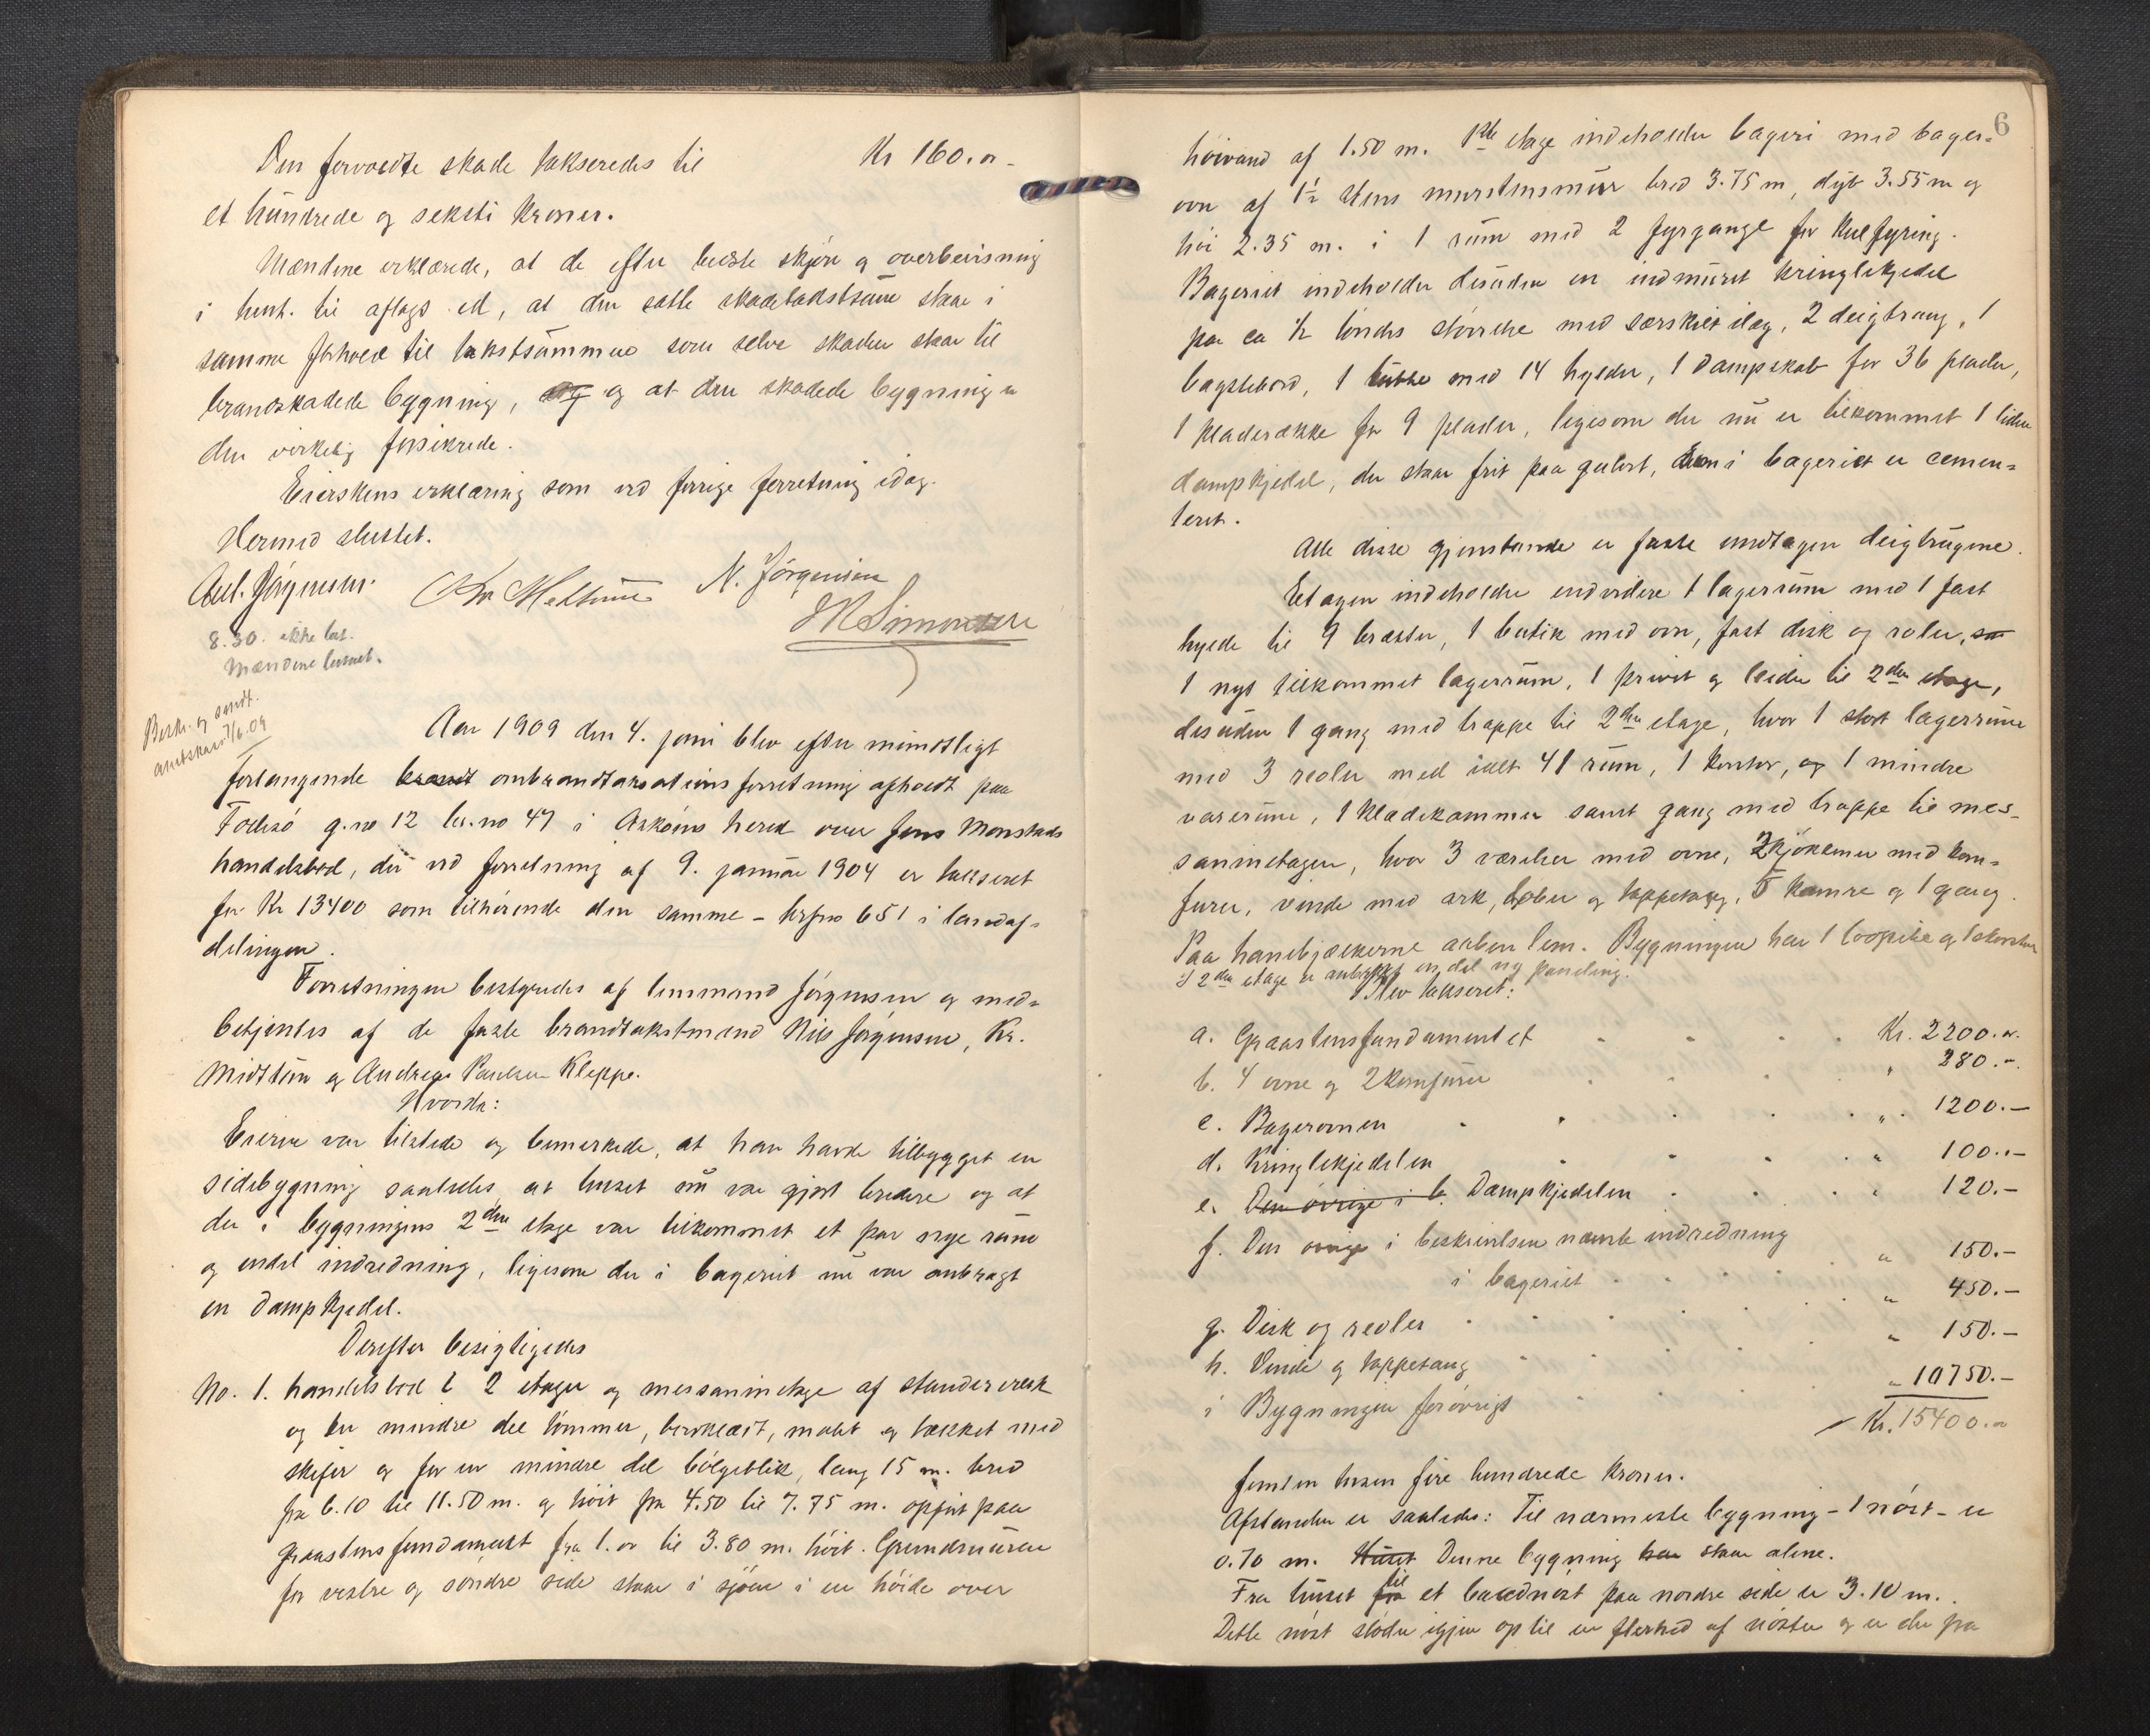 Den forvoldte skade takseredes til Kr 160.00
et hundrede og seksti kroner.
Mændene erklærede, at de efter bedste skjøn og overbevisning
i henh. til aflagt ed, at den satte skadetakstsum staar i
samme forhold til takstsummen som selve skaden staar til
brandskadede bygning, og at den skadede bygning er
den virkelig forsikrede.
Eierskens erklæring som ved forrige forretning idag.
Hermed sluttet.
Ant. Jørgensen. N. Jørgensen
Simonsen
8.30. ikke bet.
Mændene lønnet.
Beskr. og sendt.
amtskass 7/6.09
Aar 1909 den 4. juni blev efter mundtligt
forlangende brandt ombrandtaxationsforretning afholdt paa
Follesø g.no 12 br.no 47 i Askøens herred over Jens Monstads
handelsbod, der ved forretning af 9. januar 1904 er takseret
for Kr 13400 som tilhørende den samme - brfno 651 i landaf-
delingen.
Forretningen bestyredes af lensmand Jørgensen og med-
betjentes af de faste brandtakstmænd Nils Jørgensen, Kr.
Midttun og Andreas Paulsen Kleppe.
Hvorda:
Eieren var tilstede og bemerkede, at han havde tilbygget en
sidebygning saaledes at huset nu var gjort bredere og at
der i bygningens 2den etage var tilkommet et par nye rum
og endel indredning, ligesom der i bageriet nu var anbragt
en dampkjedel.
Derefter besigtigedes
No. 1. handelsbod i 2 etager og messaninetage af stenderverk
og en mindre del tømmer, bordklædt, malet og tækket med
skifer og for en mindre del bølgeblik, lang 15 m. bred
fra 6.10 til 11.50 m. og høit fra 4.50 til 7.75 m. opført paa
graastensfundament fra 1.00 til 3.80 m. høit. Grundmuren
for vestre og søndre side staar i sjøen i en høide over
6
høivand af 1.50 m. 1ste etage indeholder bageri med bager-
ovn af 1½ stens murstensmur bred 3.75 m, dyb 3.55 m og
høi 2.35 m. i 1 rum med 2 fyrgange for kulfyring.
Bageriet indeholder desuden en indmuret kringlekjedel
paa ca ½ tøndes størrelse med særskilt ilæg, 2 deigtraug, 1
bagebord, 1 med 14 hylder, 1 dampskab for 36 plader,
1 pladerække for 9 plader, ligesom der nu er tilkommet 1 liden
dampkjedel, der staar frit paa gulvet, i bageriet er cemen-
teret.
Alle disse gjenstande er faste undtagen deigtrugene.
Etagen indeholder endvidere 1 lagerrum med 1 fast
hylde til 9 brætter, 1 butik med ovn, fast disk og reoler,
1 nyt tilkommet lagerrum, 1 privet og leider til 2den etage,
desuden 1 gang med trappe til 2den etage, hvor 1 stort lagerrum
med 3 reoler med ialt 41 rum, 1 kontor, og 1 mindre
varerum, 1 klædekammer samt gang med trappe til mes-
saninetagen, hvor 3 værelser med ovne, 2 kjøkkener med kom-
furer, vinde med ark, løber og tappetaug, 5 kamre og 1 gang.
Paa hanebjælkerne aaben lem. Bygningen har 1 loopibe og 1 skorsten
I 2den etage er anbragt en del ny paneling.
Blev takseret:
a. Graastensfundamentet Kr. 2200.00
b. 4 ovne og 2 komfurer " 280.-
c. Bagerovnen " 1200.-
d. Kringlekjedelen " 100.-
e. Den øvrige i b Dampkjedelen " 120.-
f. Den øvrige i beskrivelsen nævnte indredning
i bageriet " 150.-
g. Disk og reoler " 450.-
h. Vinde og tappetaug " 150.-
i Bygningen forøvrigt " 10750.-
Kr. 15400.00
femten tusen fire hundrede kroner.
Afstanden er saaledes: Til nærmeste bygning - 1 nøst - er
0.70 m. Huset Denne bygning har staar alene.
Fra huset fra til et baadnøst paa nordre side er 3.10 m.
Dette nøst støder igjen op til en flerhed af nøster og er der fra